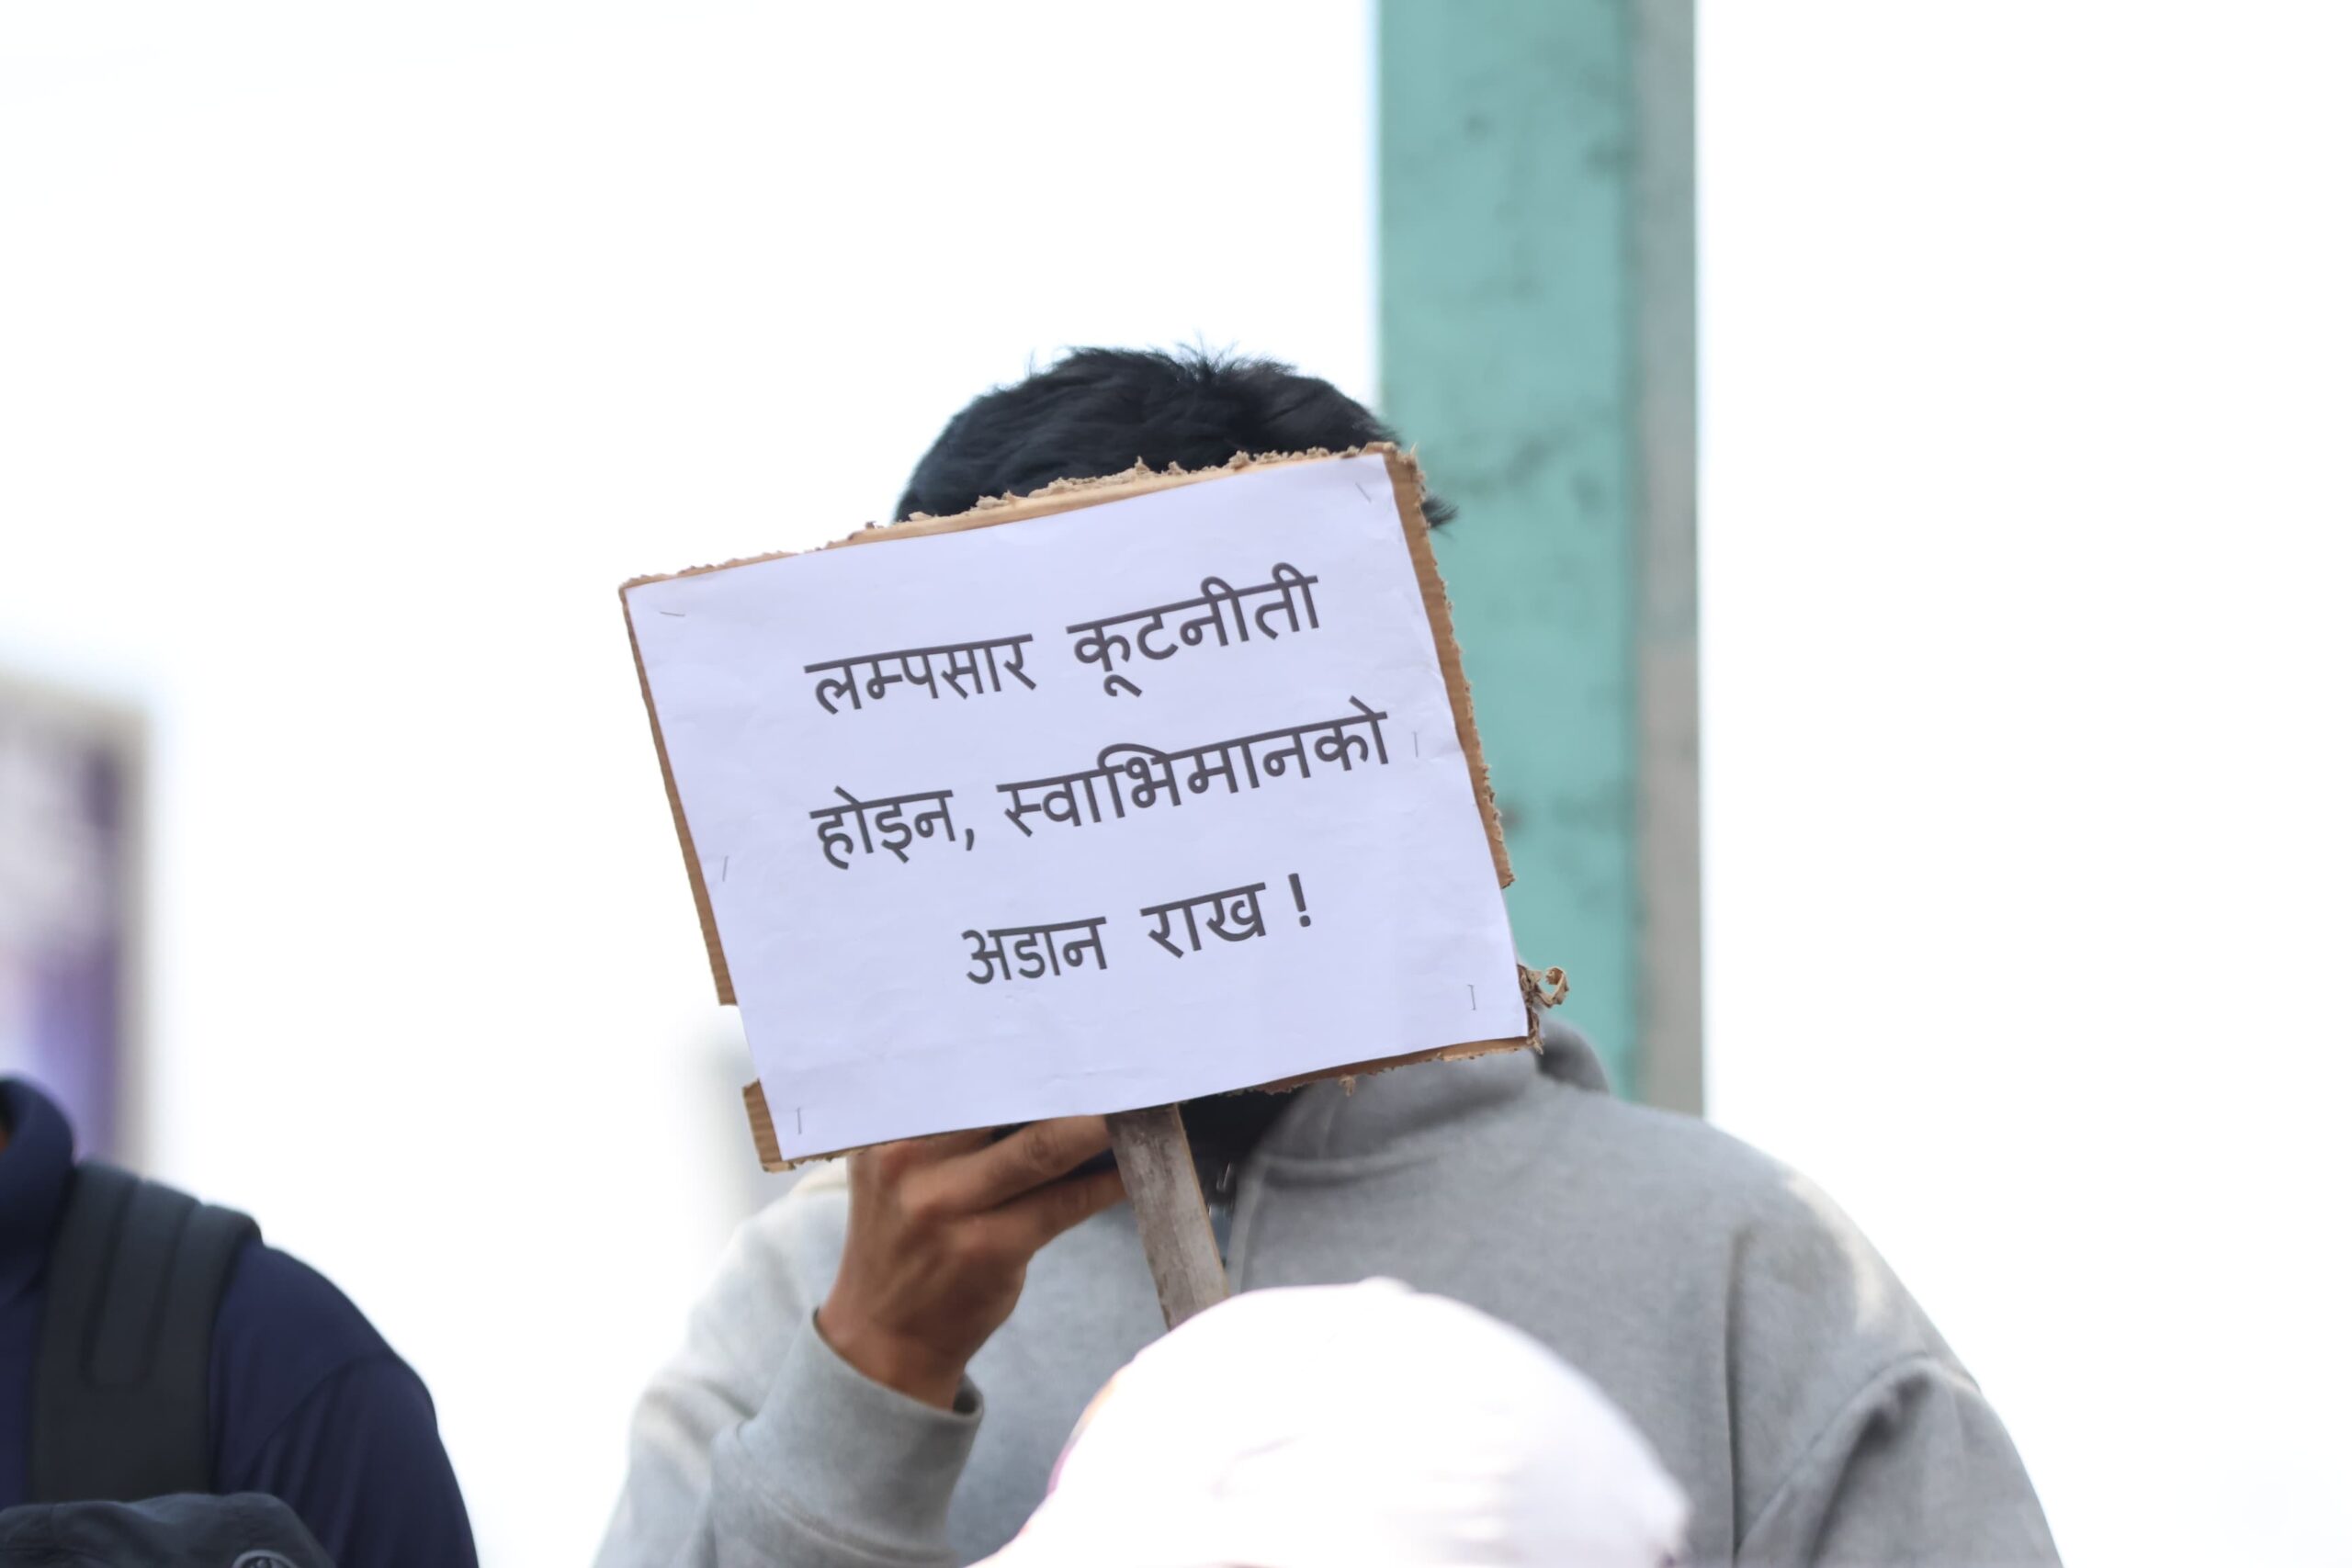 लम्पसार कूटनीती
होइन, स्वाभिमानको
अडान राख !